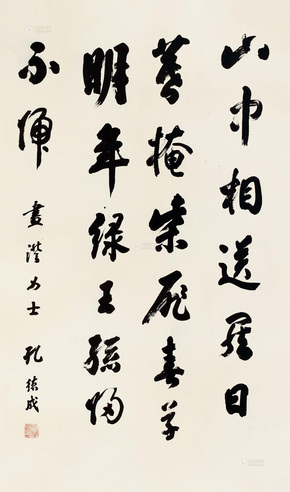 山中相送罷日
暮掩柴扉春草
明年綠王孫歸
不歸
畫女士 孔德成